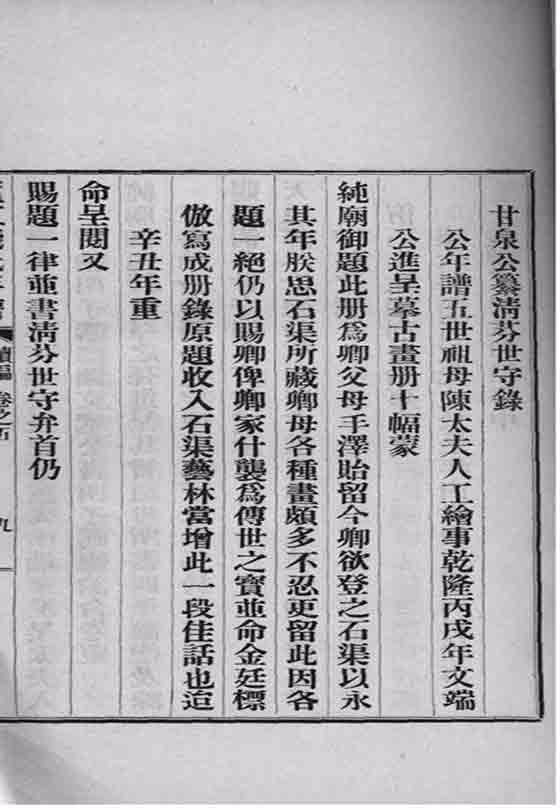 甘泉公纂清芬世守錄
公年譜五世祖母陳太夫人工繪事乾隆丙戌年文端
公進呈摹古畫册十幅蒙
純廟御題此册爲卿父母手澤貽留今卿欲登之石渠以永
其年朕思石渠所藏卿母各種畫頗多不忍更留此因各
題一絕仍以賜卿俾卿家什襲爲傳世之寶並命金廷標
倣寫成册錄原題收入石渠藝林當增此一段佳話也迨
辛丑年重
命呈閱又
賜題一律並書清芬世守弁首仍
續編 卷之五 九